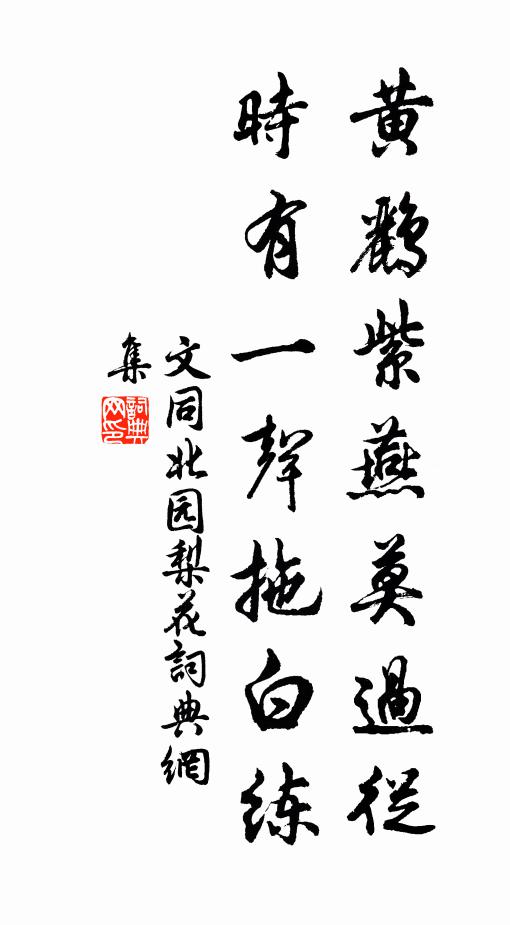 黄鸝紫燕莫過從
時有一聲拖白练
文同北园梨花詞典網
集
詞典
网印